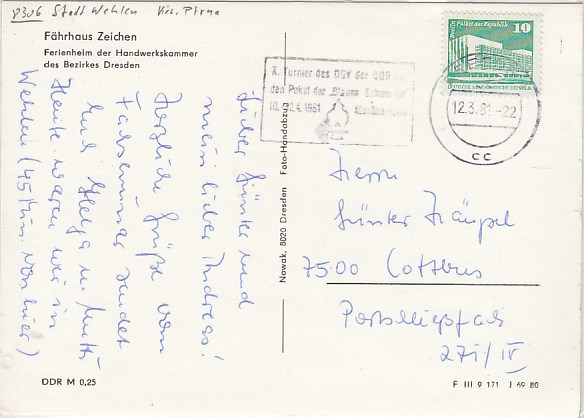 8306 Stadt Wehlen Krs. Pirna
Fährhaus Zeichen
Ferienheim der Handwerkskammer
des Bezirkes Dresden
Lieber Günter und
mein lieber Andreas!
Herzliche Grüße vom
sendet
Euch Helga u. Mutti
Heute waren wir in
Wehlen (45 Min. von hier)
Nowak, 8020 Dresden Foto-Handabzug
X. Turnier des DSV der DDR
den Pokal der
1981
Berlin Palast der Republik 10
DEUTSCHE DEMOKRATISCHE REPUBLIK
12.3.81-22
cc
Herrn
Günter
7500 Cottbus
271/IV
DDR M 0,25
F III 9 171 J 69 80